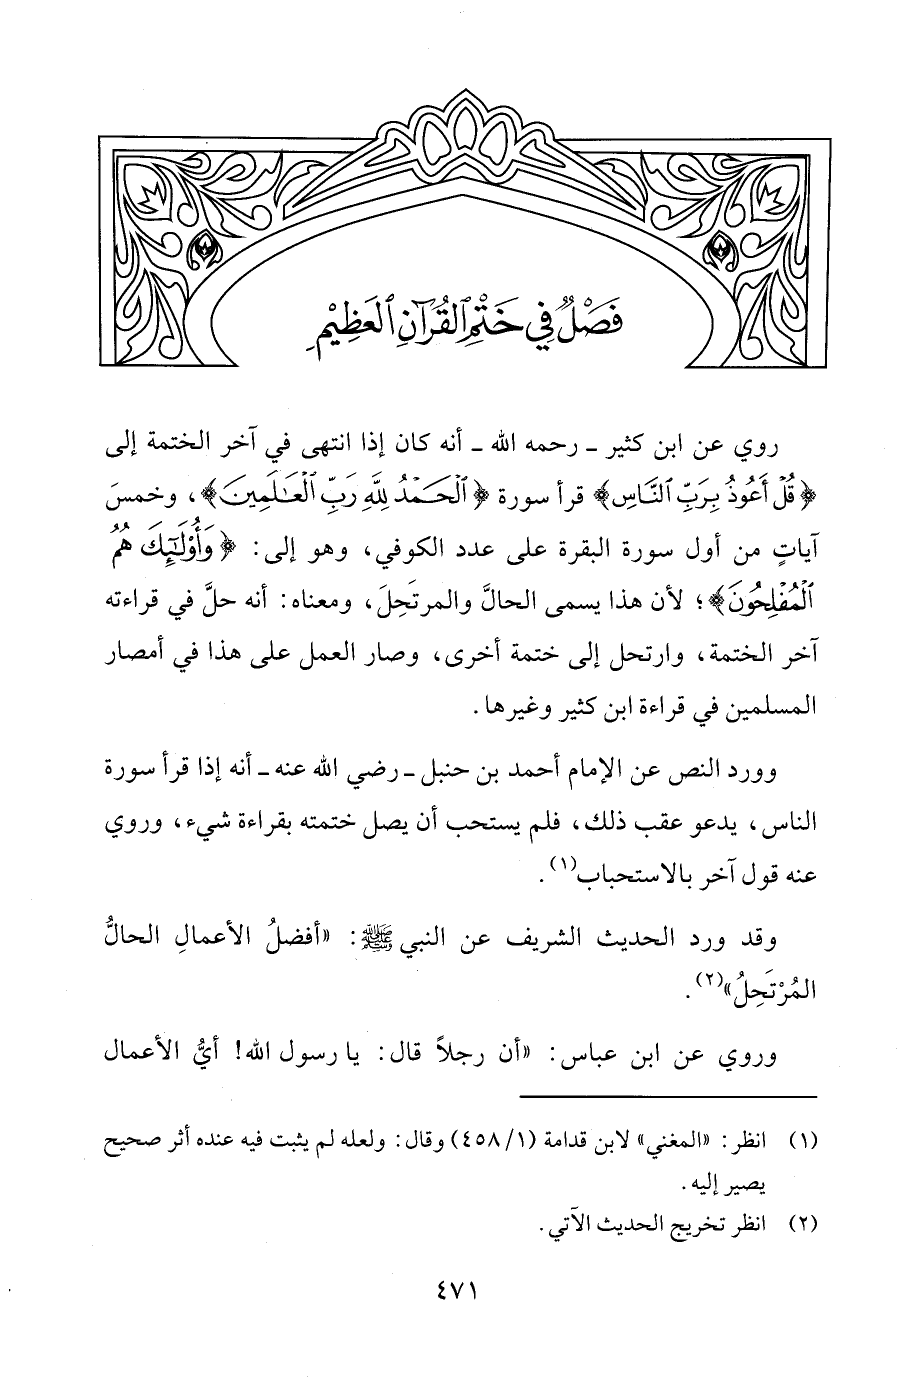 فَصْلٌ فِي خَتْمِ ٱلْقُرْآنِ ٱلْعَظِيْمِ
روي عن ابن كثير ـ رحمه الله ـ أنه كان إذا انتهى في آخر الختمة إلى
﴿قُلْ أَعُوذُ بِرَبِّ ٱلنَّاسِ﴾ قرأ سورة ﴿ٱلْحَمْدُ لِلَّهِ رَبِّ ٱلْعَٰلَمِينَ﴾، وخمسَ
آياتٍ من أول سورة البقرة على عدد الكوفي، وهو إلى: ﴿وَأُوْلَٰٓئِكَ هُمُ
ٱلْمُفْلِحُونَ﴾؛ لأن هذا يسمى الحالَّ والمرتَحِلَ، ومعناه: أنه حلَّ في قراءته
آخر الختمة، وارتحل إلى ختمة أخرى، وصار العمل على هذا في أمصار
المسلمين في قراءة ابن كثير وغيرها.
وورد النص عن الإمام أحمد بن حنبل ـ رضي الله عنه ـ أنه إذا قرأ سورة
الناس، يدعو عقب ذلك، فلم يستحب أن يصل ختمته بقراءة شيء، وروي
عنه قول آخر بالاستحباب(١).
وقد ورد الحديث الشريف عن النبي ﷺ: «أفضلُ الأعمالِ الحالُّ
المُرْتَحِلُ»(٢).
وروي عن ابن عباس: «أن رجلاً قال: يا رسول الله! أيُّ الأعمال
(١) انظر: «المغني» لابن قدامة (١/ ٤٥٨) وقال: ولعله لم يثبت فيه عنده أثر صحيح
يصير إليه.
(٢) انظر تخريج الحديث الآتي.
٤٧١